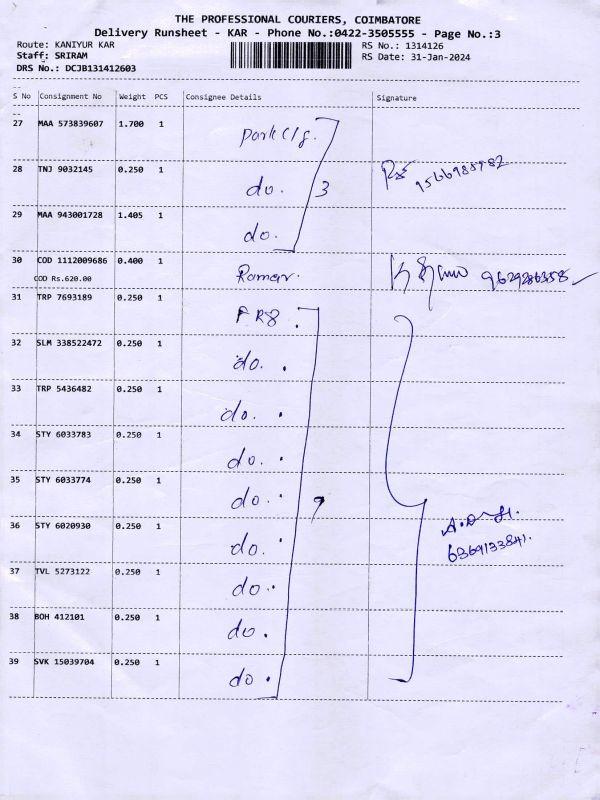 THE PROFESSIONAL COURIERS, COIMBATORE
Delivery Runsheet - KAR - Phone No.:0422-3505555 - Page No.:3
Route: KANIYUR KAR RS No.: 1314126
Staff: SRIRAM RS Date: 31-Jan-2024
DRS No.: DCJB131412603
S No Consignment No Weight PCS Consignee Details Signature
27 MAA 573839607 1.700 1
28 TNJ 9032145 0.250 1 do. 3
29 MAA 943001728 1.405 1 do.
30 COD 1112009686 0.400 1 Raman.
COD Rs.620.00
31 TRP 7693189 0.250 1
32 SLM 338522472 0.250 1 do.
33 TRP 5436482 0.250 1 do.
34 STY 6033783 0.250 1 do.
35 STY 6033774 0.250 1 do. 9
36 STY 6020930 0.250 1 do.
6369133841.
37 TVL 5273122 0.250 1 do.
38 BOH 412101 0.250 1 do.
39 SVK 15039704 0.250 1 do.